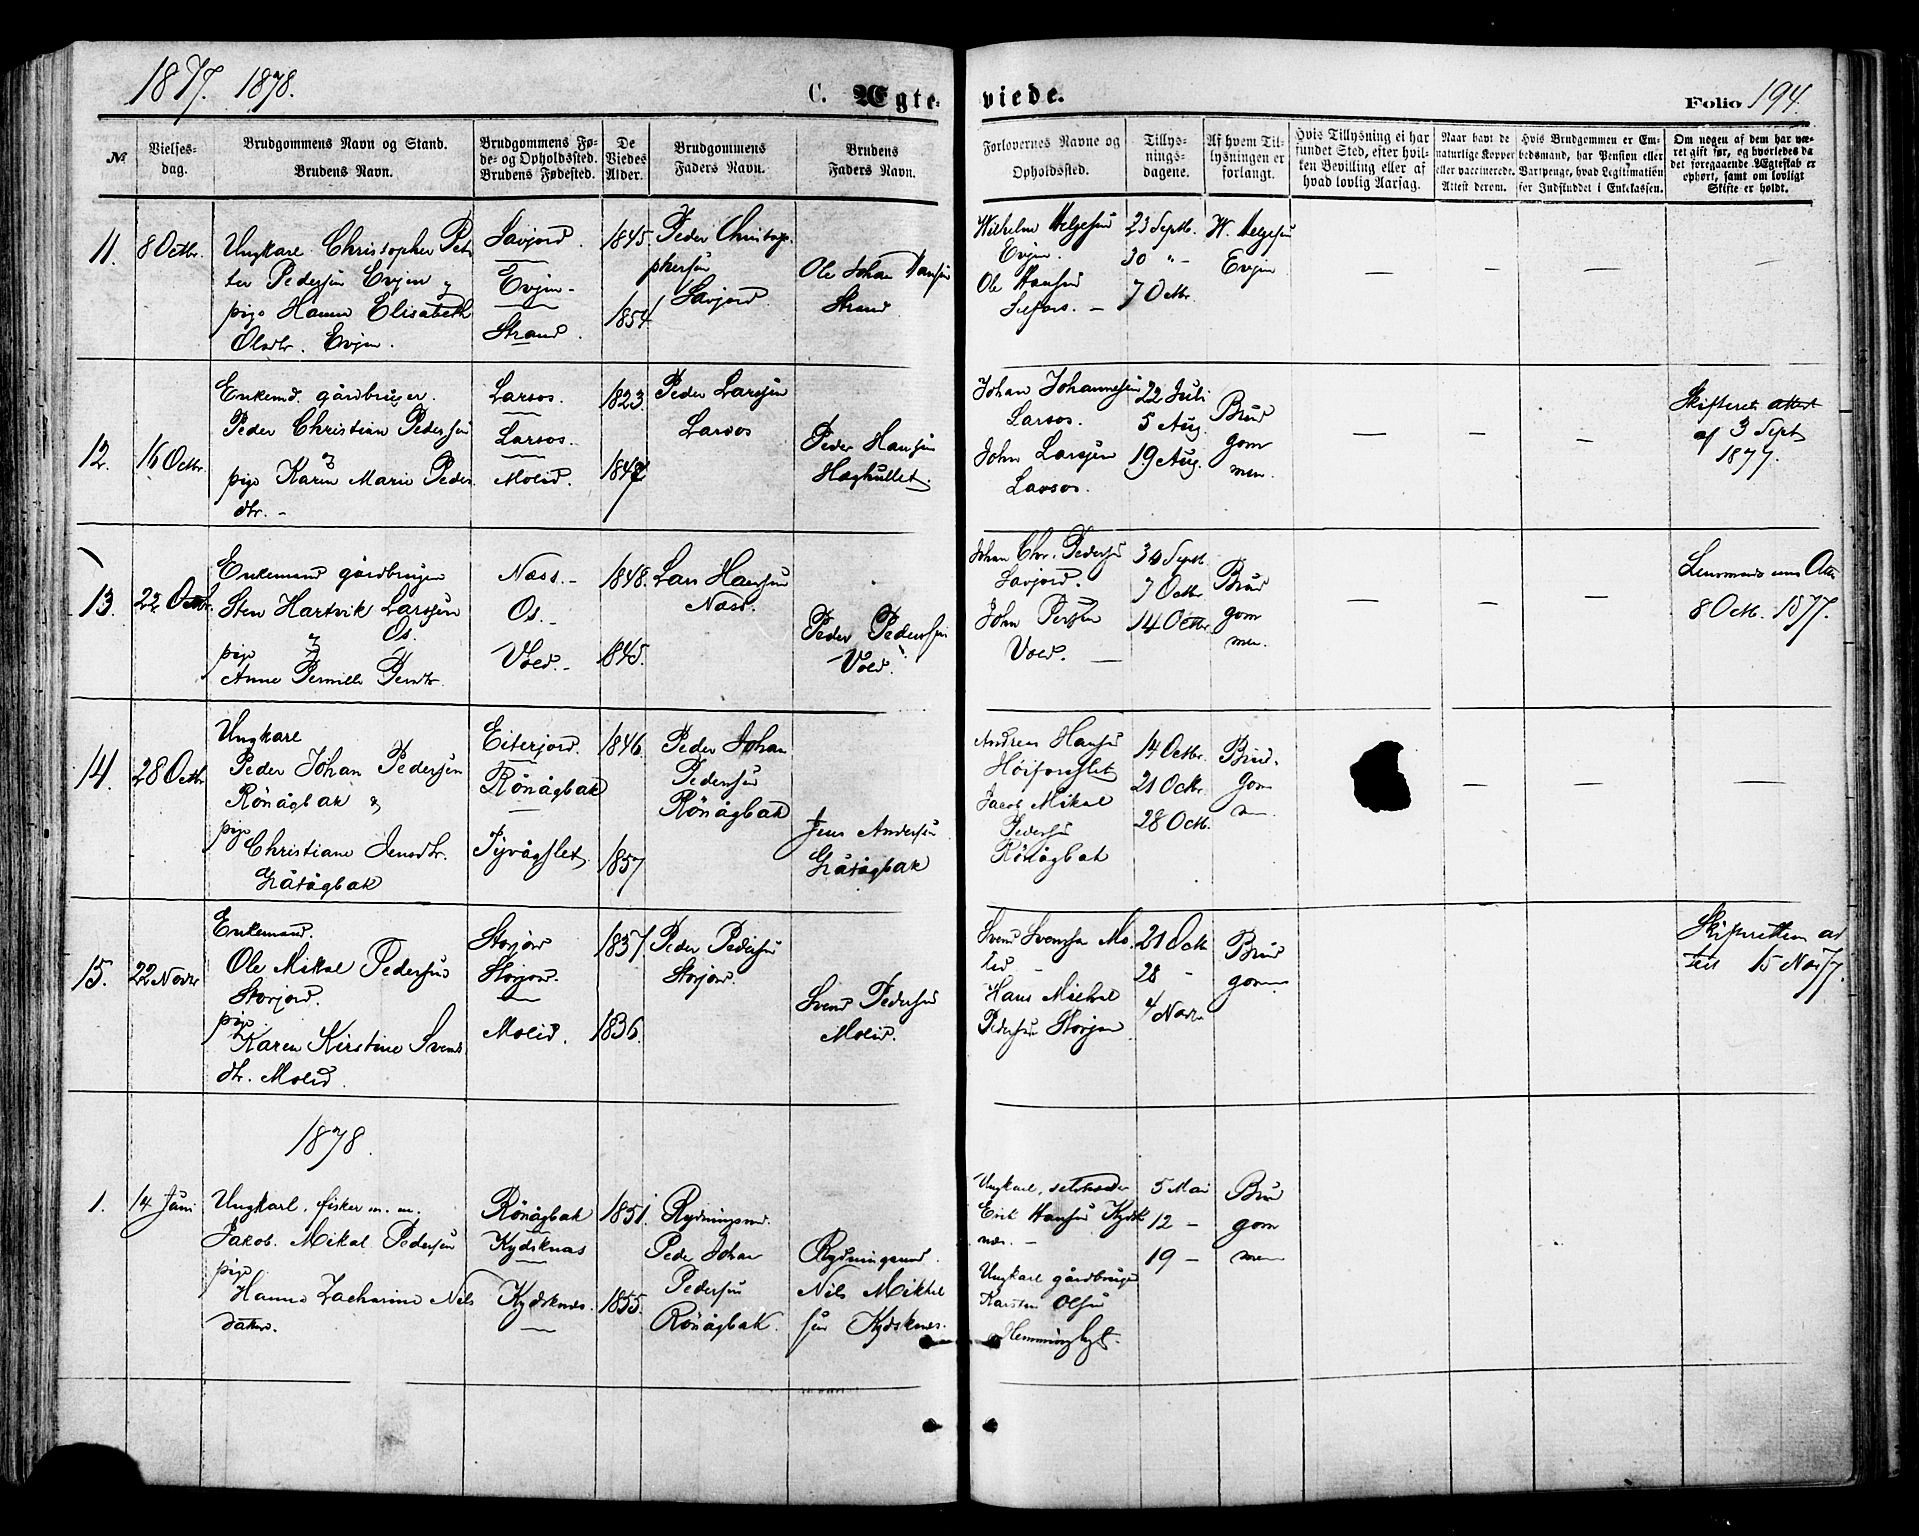 1877. 1878.
C. Ægteviede.
Folio 194.
№
Vielses-
dag.
Brudgommens Navn og Stand.
Brudens Navn.
Brudgommens Fø-
de- og Opholdssted.
Brudens Fødested.
De
Viedes
Alder.
Brudgommens
Faders Navn.
Brudens
Faders Navn.
Forlovernes Navne og
Opholdssted.
Tillys-
nings-
dagene.
Af hvem Til-
lysningen er
forlangt.
Hvis Tillysning ei har
fundet Sted, efter hvil-
ken Bevilling eller af
hvad lovlig Aarsag.
Naar havt de
naturlige Kopper
eller vaccinerede.
Attest derom.
Hvis Brudgommen er Em-
bedsmand, har Pension eller
Vartpenge, hvad Legitimation
for Indskuddet i Enkekassen.
Om nogen af dem har væ-
ret gift før, og hvorledes da
det foregaaende Ægteskab er
ophørt, samt om lovligt
Skifte er holdt.
11.
8 Octbr.
Ungkarl Christopher Pet
ter Pedersen Evjen og
pige Hanna Elisabeth
Olsdtr. Evjen.
Savjord.
Evjen-
Strand.
1845.
1854
Peder Christop
phersen
Savjord
Ole Johan Hansen
Strand
Wilhelm Helgesen
Evjen.
Ole Hansen
23 Septb.
30 " -
7 Octbr.
W. Helgesen
Evjen
12.
16 Octbr.
Enkemd. gårdbruger.
Peder Christian Pedersen
og
pige Karen Marie Peders
dtr. -
Larsos.
Larsos.
Molid.
1823.
1847
Peder Larsen
Larsos
Peder Hansen
Haghullet.
Johan Johannesen
Larsos.
John Larsen
Larsos.
22 Juli
5 Aug.
19 Aug.
Brud
gom
men.
Skifteret. attest
af 3 Sept
1877.
13.
22 Octbr.
Enkemand gårdbruger
Sten Hartvik Larssen
og Os.
pige
Anne Pernille Persdtr.
Næss.-
Os.-
Vold.-
1848.
1845.
Lars Hansen
Næss.
Peder Pedersen
Vold.
Johan Chr. Pedersen
Savjord.
John Persen
Vold. -
30 Septb.
7 Octbr
14 Octbr
Brud
gom
men.
Lensmandens Atte
8 Octb. 1877.
14.
28 Octbr
Ungkarl
Peder Johan Pedersen
Rönågbak &
pige
Christiane Jensdtr.
Gråtågbak
Eiterjord.
Rönågbak
Tyvågflet.
1846.
1857
Peder Johan
Pedersen
Rönågbak
Jens Andersen
Gråtågbak
Andreas Hansen
Höiforsflet
Jacob Mikal
Pedersen
Rönågbak
14 Octbr.
21 Octbr.
28 Octb.
Brud.
gom
15.
22 Novbr
Enkemand.
Ole Mikal Pedersen
Storjord.
pige
Karen Kirstine Svends
dtr. Molid.
Storjord
Storjord.
Molid.
1837
1836.
Peder Pedersen
Storjord.
Svend Pedersen
Molid.
Svend Svensen Mo
lid -
Hans Michal
Pedersen Storjord
21 Octb
28 -
4 Novbr
Brud
gom
Skifterettens at
test 15 Nov 77.
1878.
1.
14 Juni
Ungkarl. fisker m. m.
Jakob. Mikal Pedersen
pige
Hanna Zacharina Nils
datter.
Rönågbak
Kydsknæs
Kydsknæs.
1851.
1855.
Rydningsmd.
Peder Johan
Pedersen
Rönågbak.
Rydningsmd.
Nils Mikkel
sen Kydsknæs.
Ungkarl,
Erik Hansen Kydsk
næs. -
Ungkarl gårdbruger
Karsten Olsen
Hemminghyt.
5 Mai
12 -
19 -
Brud
gom
men